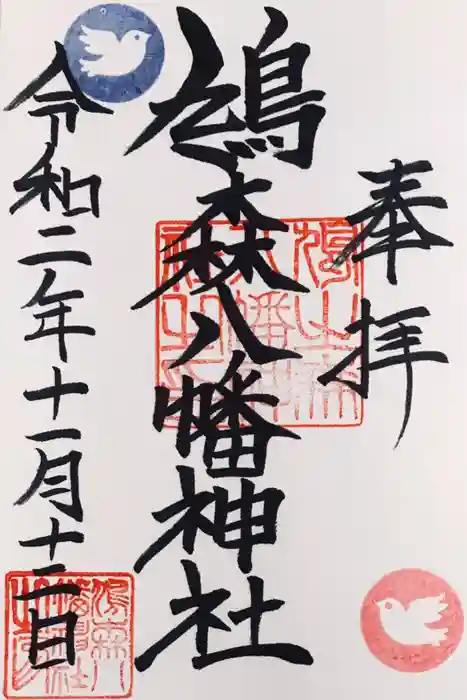 奉拝
鳩森八幡神社
令和二年十一月十二日